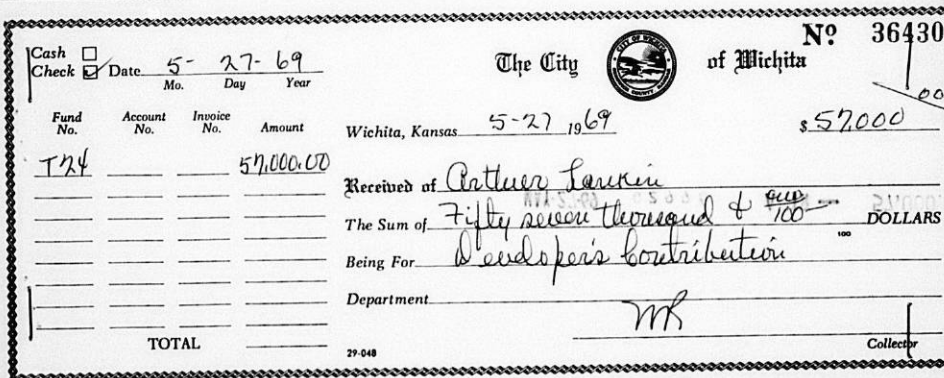 Cash ☐
Check ☑ Date 5- 27- 69
Mo. Day Year
The City of Wichita
CITY OF WICHITA
Nº 36430
Fund No. Account No. Invoice No. Amount
T24 57,000.00
TOTAL
Wichita, Kansas 5-27 1969 $57,000 00
Received of Arthur Larkin
The Sum of Fifty seven thousand & 100 DOLLARS
100
Being For Developer's Contribution
Department
MR
Collector
29-048